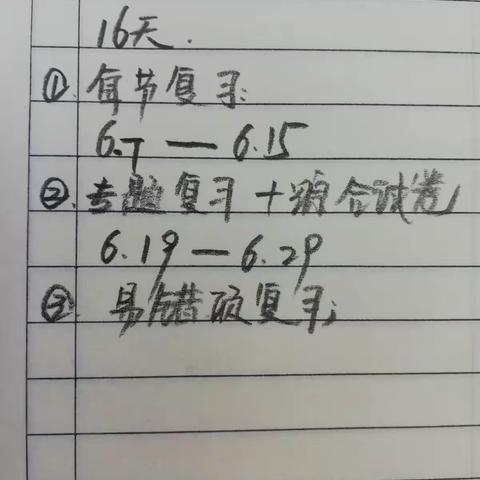 16天.
① 章节复习:
6.7 — 6.15
② 专题复习+综合试卷
6.19 — 6.29
③ 易错项复习;